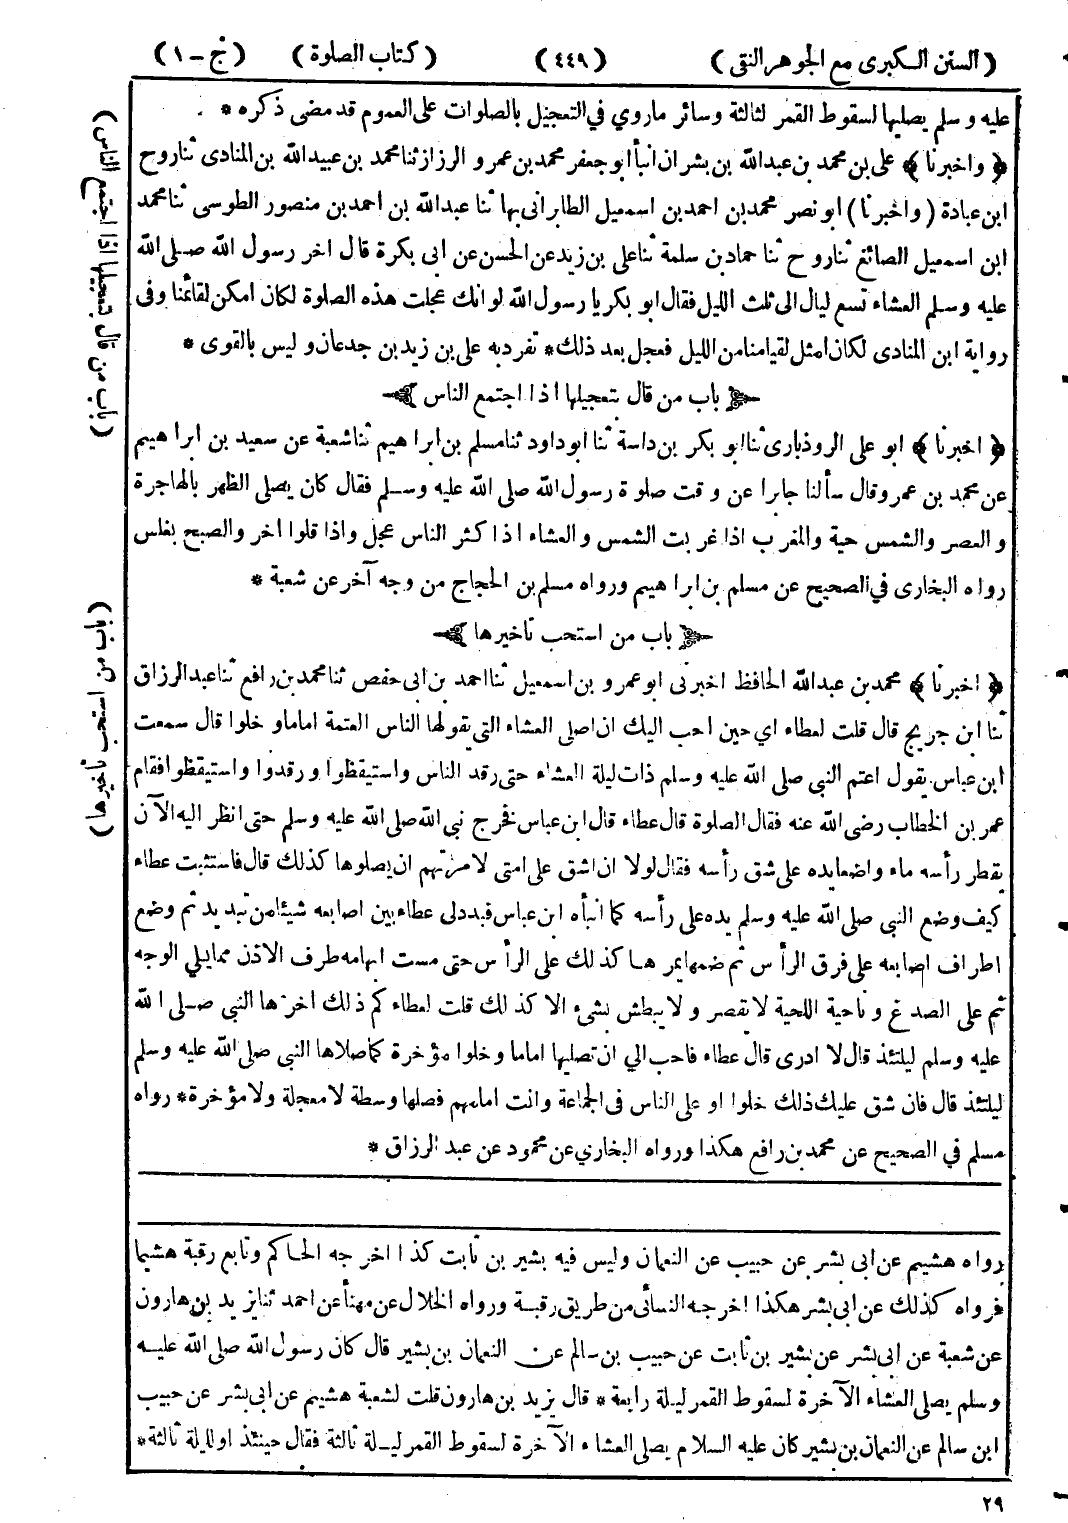 (السنن الكبرى مع الجوهر النقى) (٤٤٩) (كتاب الصلوة) (ج-١)
عليه وسلم يصليها لسقوط القمر لثالثة وسائر ماروي في التعجيل بالصلوات على العموم قد مضى ذكره *
﴿ واخبرنا ﴾ على بن محمد بن عبدالله بن بشران انبأ ابو جعفر محمد بن عمرو الرزاز ثنا محمد بن عبيدالله بن المنادى ثنا روح
ابن عبادة (واخبرنا) ابو نصر محمد بن احمد بن اسمعيل الطابرانى بها ثنا عبدالله بن احمد بن منصور الطوسى ثنا محمد
ابن اسمعيل الصائغ ثنا روح ثنا حماد بن سلمة ثنا على بن زيد عن الحسن عن ابى بكرة قال اخر رسول الله صلى الله
عليه وسلم العشاء تسع ليال الى ثلث الليل فقال ابو بكر يا رسول الله لو انك عجلت هذه الصلوة لكان امكن لقائمنا وفى
رواية ابن المنادى لكان امثل لقيامنا من الليل فعجل بعد ذلك * تفرد به على بن زيد بن جدعان و ليس بالقوى *
باب من قال بتعجيلها اذا اجتمع الناس
﴿ اخبرنا ﴾ ابو على الروذبارى ثنا ابو بكر بن داسة ثنا ابو داود ثنا مسلم بن ابراهيم ثنا شعبة عن سعيد بن ابراهيم
عن محمد بن عمرو قال سألنا جابرا عن وقت صلوة رسول الله صلى الله عليه وسلم فقال كان يصلى الظهر بالهاجرة
والعصر والشمس حية والمغرب اذا غربت الشمس والعشاء اذا كثر الناس عجل واذا قلوا اخر والصبح بغلس
رواه البخارى في الصحيح عن مسلم بن ابراهيم ورواه مسلم بن الحجاج من وجه آخر عن شعبة *
باب من استحب تأخيرها
﴿ اخبرنا ﴾ محمد بن عبدالله الحافظ اخبرنى ابو عمرو بن اسمعيل ثنا احمد بن ابى حفص ثنا محمد بن رافع ثنا عبدالرزاق
ثنا ابن جريج قال قلت لعطاء اي حين احب اليك ان اصلى العشاء التى يقولها الناس العتمة اماما و خلوا قال سمعت
ابن عباس يقول اعتم النبي صلى الله عليه وسلم ذات ليلة العشاء حتى رقد الناس واستيقظوا ورقدوا واستيقظوا فقام
عمر بن الخطاب رضى الله عنه فقال الصلوة قال عطاء قال ابن عباس فخرج نبي الله صلى الله عليه وسلم حتى انظر اليه الآن
يقطر رأسه ماء واضعا يده على شق رأسه فقال لولا ان اشق على امتى لامرتهم ان يصلوها كذلك قال فاستثبت عطاء
كيف وضع النبي صلى الله عليه وسلم يده على رأسه كما انبأه ابن عباس فبدد لى عطاء بين اصابعه شيئا من تبديد ثم وضع
اطراف اصابعه على فرق الرأس ثم ضمها يمرها كذلك على الرأس حتى مست ابهامه طرف الاذن مما يلي الوجه
ثم على الصدغ وناحية اللحية لا يقصر ولا يبطش بشىء الا كذلك قلت لعطاء كم ذلك اخرها النبى صلى الله
عليه وسلم ليلتئذ قال لا ادرى قال عطاء فاحب الي ان تصليها اماما وخلوا مؤخرة كما صلاها النبى صلى الله عليه وسلم
ليلتئذ قال فان شق عليك ذلك خلوا او على الناس فى الجماعة وانت امامهم فصلها وسطة لا معجلة ولا مؤخرة * رواه
مسلم في الصحيح عن محمد بن رافع هكذا ورواه البخاري عن محمود عن عبد الرزاق *
رواه هشيم عن ابى بشر عن حبيب عن النعمان وليس فيه بشير بن ثابت كذا اخرجه الحاكم وتابع رقبة هشيما
فرواه كذلك عن ابى بشر هكذا اخرجه النسائى من طريق رقبة ورواه الخلال عن مهنأ عن احمد ثنا يزيد بن هارون
عن شعبة عن ابى بشر عن بشير بن ثابت عن حبيب بن سالم عن النعمان بن بشير قال كان رسول الله صلى الله عليه
وسلم يصلى العشاء الآخرة لسقوط القمر ليلة رابعة * قال يزيد بن هارون قلت لشعبة هشيم عن ابى بشر عن حبيب
ابن سالم عن النعمان بن بشير كان عليه السلام يصلى العشاء الآخرة لسقوط القمر ليلة ثالثة فقال حينئذ او لليلة ثالثة *
٢٩
(باب من قال بتعجيلها اذا اجتمع الناس)
(باب من استحب تأخيرها)